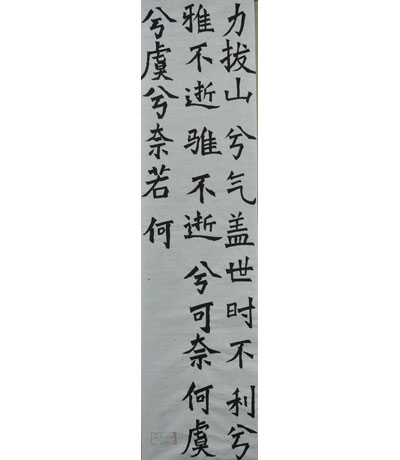 力拔山兮气盖世时不利兮
雅不逝骓不逝兮可奈何虞
兮虞兮奈若何